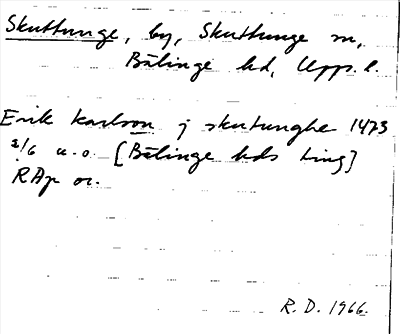 Skuttunge, by, Skuttunge sn,
Bälinge hd, Upps. l.
Erik karlson j skutunghe 1473
2/6 u.o. [Bälinge hds ting]
RAp or.
R.D. 1966.